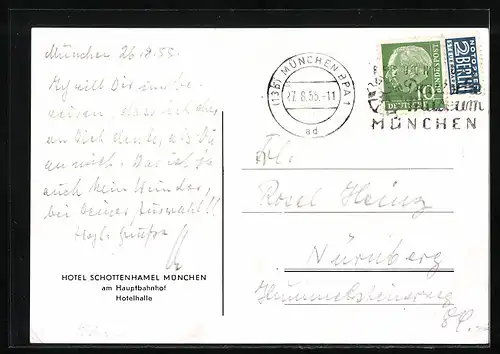 München 26.8.55.
Ich will Dir nur be-
weisen, dass ich eher
an Dich denke, als Du
an mich. Das ist ja
auch kein Wunder,
bei Deiner Auswahl!!
Herzl. Grüße
HOTEL SCHOTTENHAMEL MÜNCHEN
am Hauptbahnhof
Hotelhalle
(13b) MÜNCHEN BPA 1
27.8.55.-11
ad
MÜNCHEN
10
NOTOPFER
2 BERLIN
STEUERMARKE
Frl.
Rosel Heinz
Nürnberg
Hummelsteinerweg